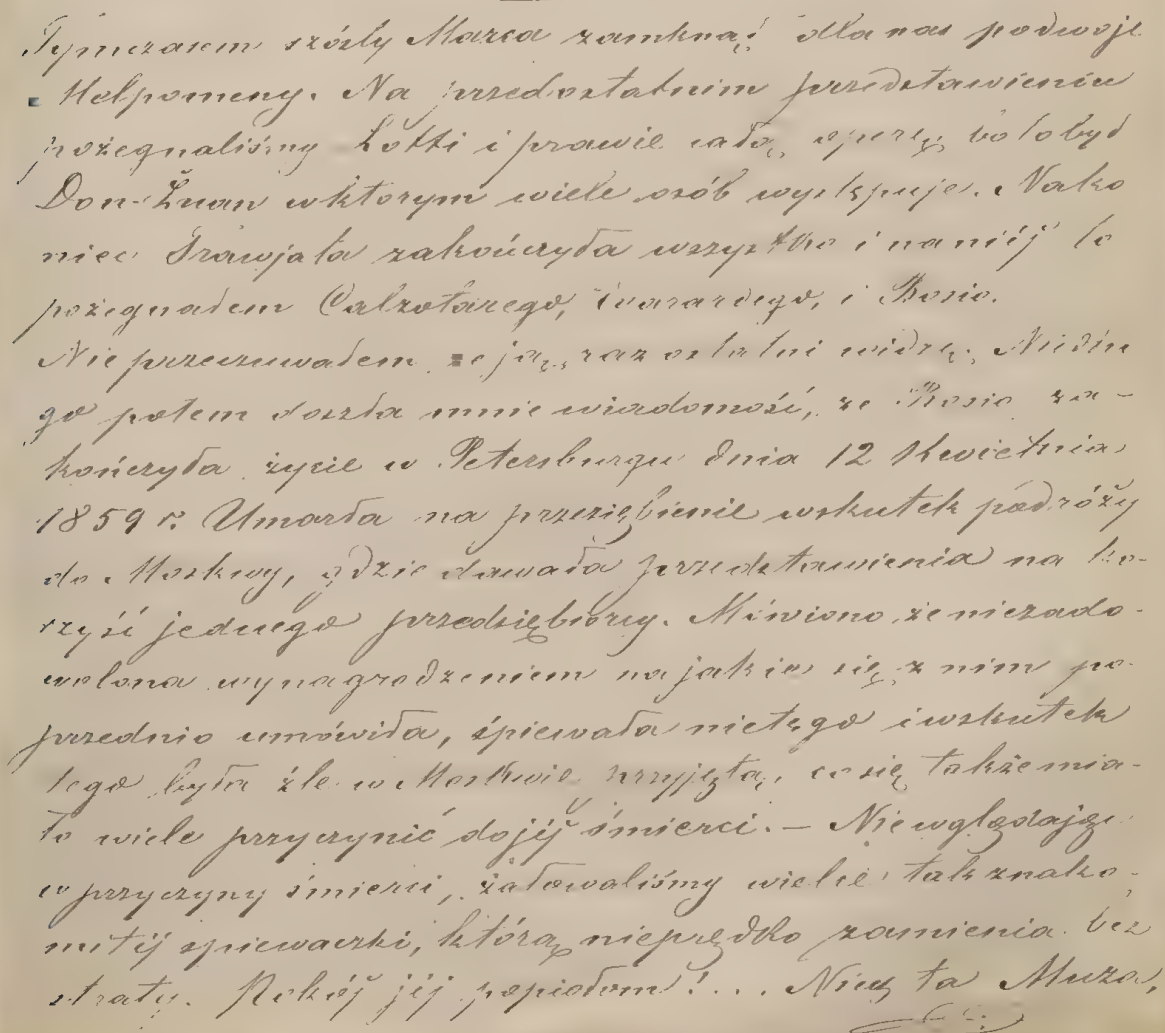 Tymczasem szósty Marca zamknął dla nas podwoje
Melpomeny. Na przedostatnim przedstawieniu
pożegnaliśmy Lotti i prawie całą operę, bo to był
Don-Żuan w ktorym wiele osób występuje. Nako
niec Trawjata zakończyła wszystko i na niéj to
pożegnałem Calzolarego, Everardego, i Bosio.
Nie przeczuwałem że ją raz ostatni widzę. Niedłu
go potem doszła mnie wiadomość, że Bosio za-
kończyła życie w Petersburgu dnia 12 Kwietnia
1859 r. Umarła na przeziębienie wskutek podróży
do Moskwy, gdzie dawała przedstawienia na ko-
rzyść jednego przedsiębiorcy. Mówiono, że niezado-
wolona wynagrodzeniem na jakie się z nim po-
przednio umówiła, śpiewała nietęgo i wskutek
tego była źle w Moskwie przyjętą, co się także mia-
ło wiele przyczynić do jéj śmierci. — Nie wglądając
w przyczyny śmierci, żałowaliśmy wielce tak znako-
mitéj spiewaczki, którą nieprędko zamienią bez
straty. Pokój jéj popiołom! ... Niech ta Muza,